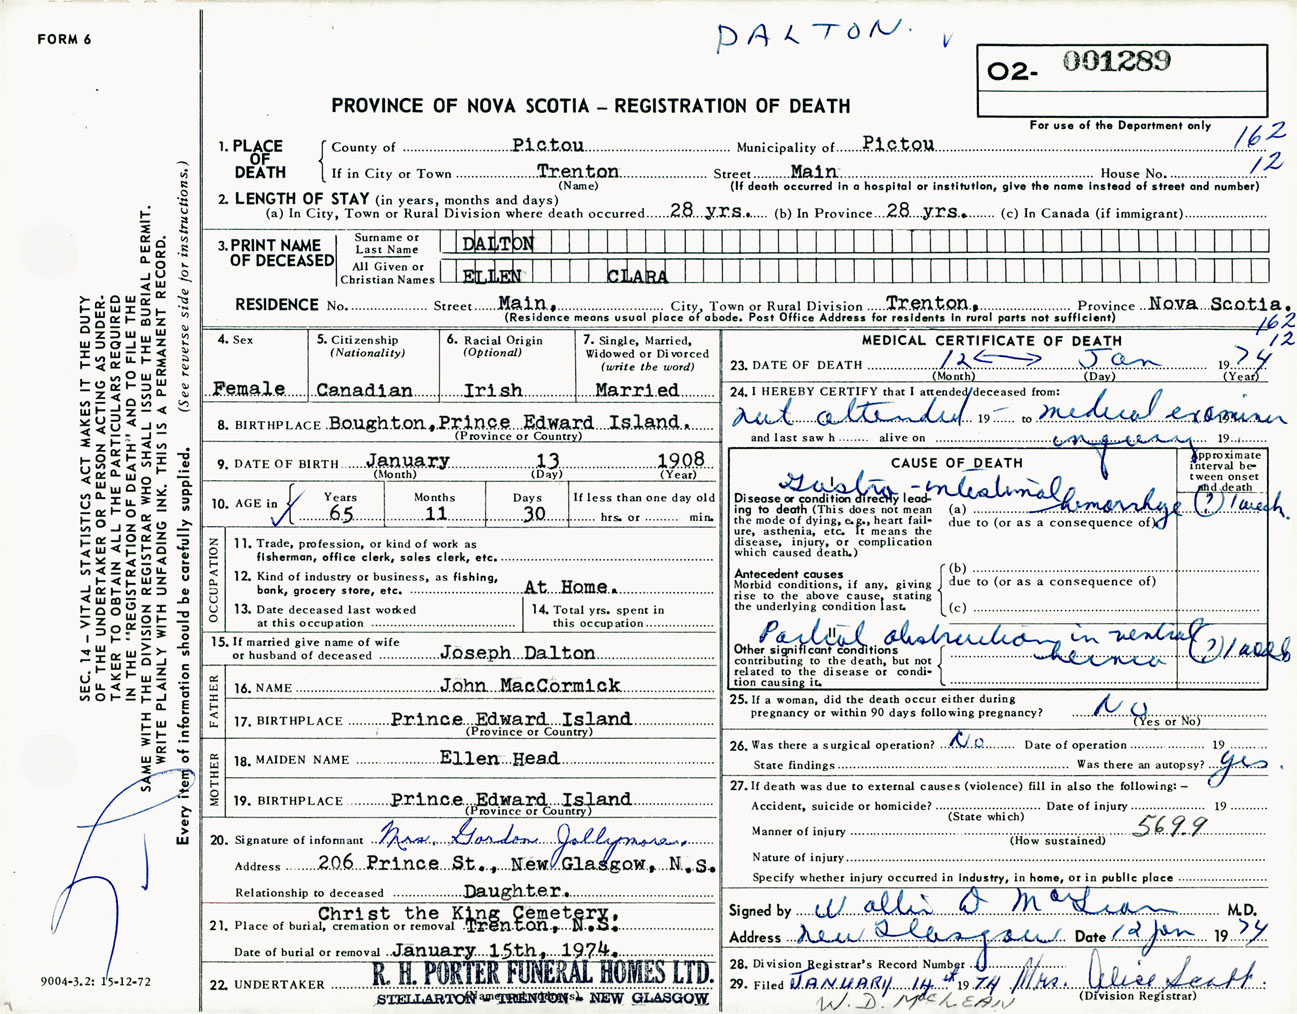 FORM 6
DALTON.
O2- 001289
For use of the Department only
PROVINCE OF NOVA SCOTIA – REGISTRATION OF DEATH
1. PLACE OF DEATH
County of Pictou Municipality of Pictou 162
If in City or Town Trenton Street Main House No. 12
(Name) (If death occurred in a hospital or institution, give the name instead of street and number)
2. LENGTH OF STAY (in years, months and days)
(a) In City, Town or Rural Division where death occurred 28 yrs. (b) In Province 28 yrs. (c) In Canada (if immigrant)
3. PRINT NAME OF DECEASED
Surname or Last Name DALTON
All Given or Christian Names ELLEN CLARA
RESIDENCE No. Street Main, City, Town or Rural Division Trenton, Province Nova Scotia.
(Residence means usual place of abode. Post Office Address for residents in rural parts not sufficient)
162
12
4. Sex Female
5. Citizenship (Nationality) Canadian
6. Racial Origin (Optional) Irish
7. Single, Married, Widowed or Divorced (write the word) Married
8. BIRTHPLACE Boughton, Prince Edward Island.
(Province or Country)
9. DATE OF BIRTH January 13 1908
(Month) (Day) (Year)
10. AGE in Years 65 Months 11 Days 30 If less than one day old hrs. or min.
OCCUPATION
11. Trade, profession, or kind of work as
fisherman, office clerk, sales clerk, etc.
12. Kind of industry or business, as fishing,
bank, grocery store, etc. At Home.
13. Date deceased last worked
at this occupation
14. Total yrs. spent in
this occupation
15. If married give name of wife
or husband of deceased Joseph Dalton
FATHER
16. NAME John MacCormick
17. BIRTHPLACE Prince Edward Island
(Province or Country)
MOTHER
18. MAIDEN NAME Ellen Head
19. BIRTHPLACE Prince Edward Island
(Province or Country)
20. Signature of informant Mrs. Gordon Jollymore.
Address 206 Prince St., New Glasgow, N.S.
Relationship to deceased Daughter.
Christ the King Cemetery,
21. Place of burial, cremation or removal Trenton, N.S.
Date of burial or removal January 15th, 1974.
22. UNDERTAKER R. H. PORTER FUNERAL HOMES LTD.
STELLARTON TRENTON NEW GLASGOW
MEDICAL CERTIFICATE OF DEATH
23. DATE OF DEATH 12 Jan 1974
(Month) (Day) (Year)
24. I HEREBY CERTIFY that I attended deceased from:
not attended 19 – to medical examiner 19
and last saw h alive on inquiry 19
CAUSE OF DEATH
Approximate interval between onset and death
I
Gastro-intestinal
Disease or condition directly leading to death (This does not mean the mode of dying, e.g., heart failure, asthenia, etc. It means the disease, injury, or complication which caused death.)
(a) hemorrhge (?) 1 week.
due to (or as a consequence of)
Antecedent causes
Morbid conditions, if any, giving rise to the above cause, stating the underlying condition last.
(b)
due to (or as a consequence of)
(c)
II
Partial obstruction in ventral
Other significant conditions
contributing to the death, but not related to the disease or condition causing it.
hernia (?) 1 week
25. If a woman, did the death occur either during
pregnancy or within 90 days following pregnancy? NO
(Yes or No)
26. Was there a surgical operation? No Date of operation 19
State findings Was there an autopsy? yes.
27. If death was due to external causes (violence) fill in also the following: –
Accident, suicide or homicide? Date of injury 19
(State which)
Manner of injury 569.9
(How sustained)
Nature of injury
Specify whether injury occurred in industry, in home, or in public place
Signed by M.D.
Address New Glasgow Date 12 Jan 1974
28. Division Registrar's Record Number
29. Filed JANUARY 14th 1974 Mrs. Alice Scott.
(Division Registrar)
W. D. McLEAN
SEC. 14 – VITAL STATISTICS ACT MAKES IT THE DUTY
OF THE UNDERTAKER OR PERSON ACTING AS UNDER-
TAKER TO OBTAIN ALL THE PARTICULARS REQUIRED
IN THE "REGISTRATION OF DEATH" AND TO FILE THE
SAME WITH THE DIVISION REGISTRAR WHO SHALL ISSUE THE BURIAL PERMIT.
WRITE PLAINLY WITH UNFADING INK. THIS IS A PERMANENT RECORD.
Every item of information should be carefully supplied. (See reverse side for instructions.)
9004-3.2: 15-12-72